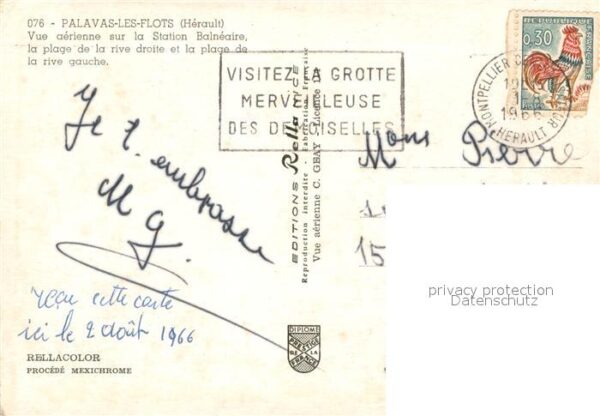 076 - PALAVAS-LES-FLOTS (Hérault)
Vue aérienne sur la Station Balnéaire,
la plage de la rive droite et la plage de
la rive gauche.
VISITEZ LA GROTTE
MERVEILLEUSE
DES DEMOISELLES
REPUBLIQUE FRANÇAISE
0,30
MONTPELLIER
1966
HERAULT
Je t'embrasse
M G.
Mons Pierre
15
EDITIONS Rella NICE
Reproduction interdite - Fabrication Française
Vue aérienne C. GRAY - Licence
reçu cette carte
ici le 2 août 1966
RELLACOLOR
PROCÉDÉ MEXICHROME
DIPLOME
PRESTIGE
DE LA
FRANCE
privacy protection
Datenschutz